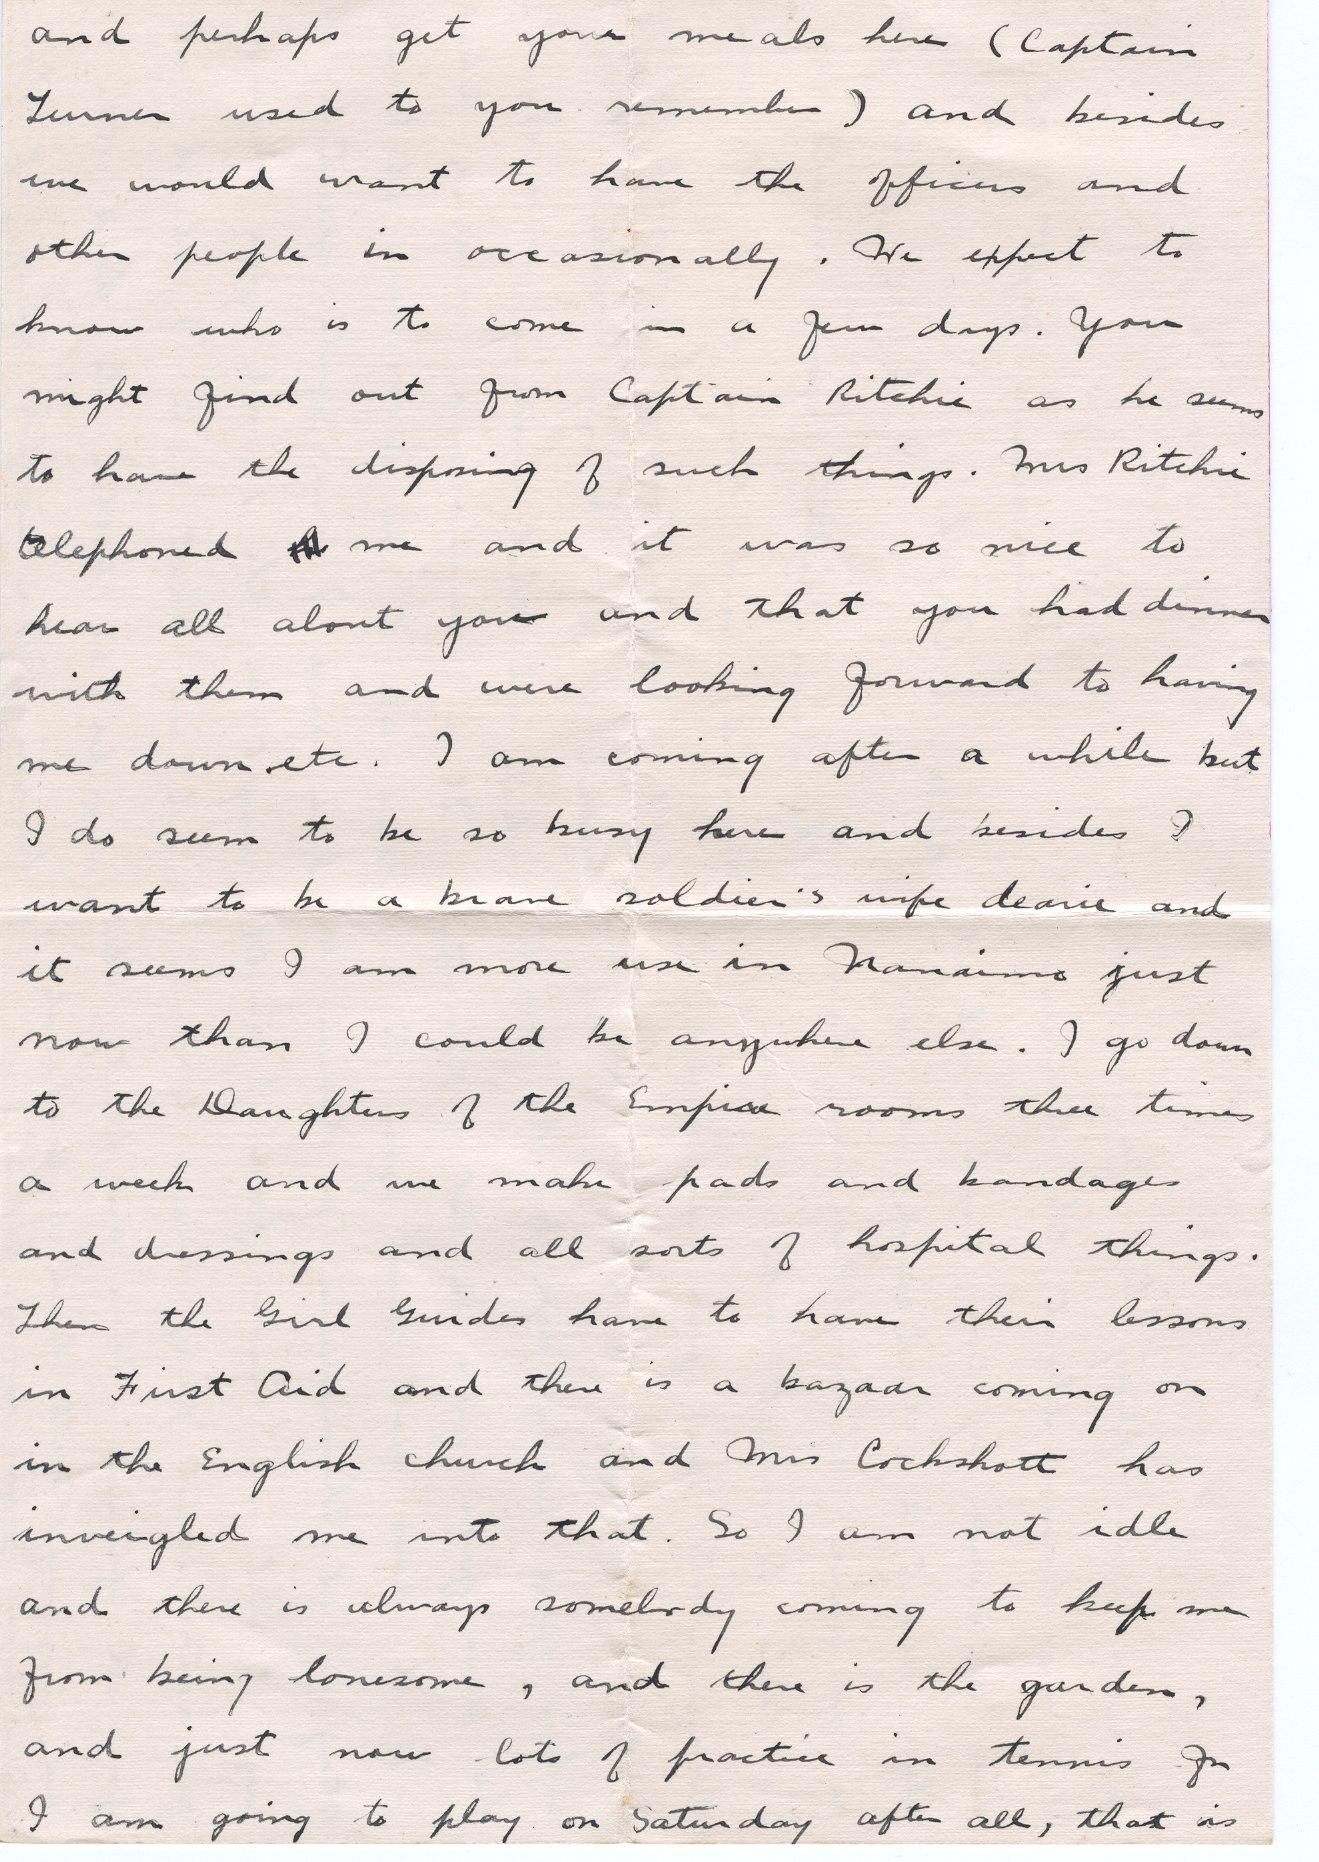 and perhaps get your meals here (Captain
Turner used to you remember) and besides
we would want to have the officers and
other people in occasionally. We expect to
know who is to come in a few days. You
might find out from Captain Ritchie as he seems
to have the disposing of such things. Mrs Ritchie
telephoned me and it was so nice to
hear all about you and that you had dinner
with them and were looking forward to having
me down etc. I am coming after a while but
I do seem to be so busy here and besides I
want to be a brave soldier's wife dearie and
it seems I am more use in Nanaimo just
now than I could be anywhere else. I go down
to the Daughters of the Empire rooms three times
a week and we make pads and bandages
and dressings and all sorts of hospital things.
Then the Girl Guides have to have their lessons
in First Aid and there is a bazaar coming on
in the English church and Mrs Cockshott has
inveigled me into that. So I am not idle
and there is always somebody coming to keep me
from being lonesome, and there is the garden,
and just now lots of practice in tennis for
I am going to play on Saturday after all, that is